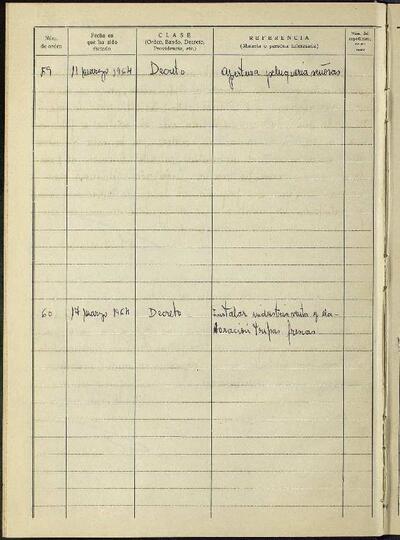 Núm. de orden
Fecha en que ha sido dictado
CLASE
(Orden, Bando, Decreto, Providencia, etc.)
REFERENCIA
(Materia o persona interesada)
Núm. del expediente,
59 11 marzo 1964 Decreto apertura peluqueria señoras
60 17 marzo 1964 Decreto Instalar industria venta y ela-
boración tripas frescas